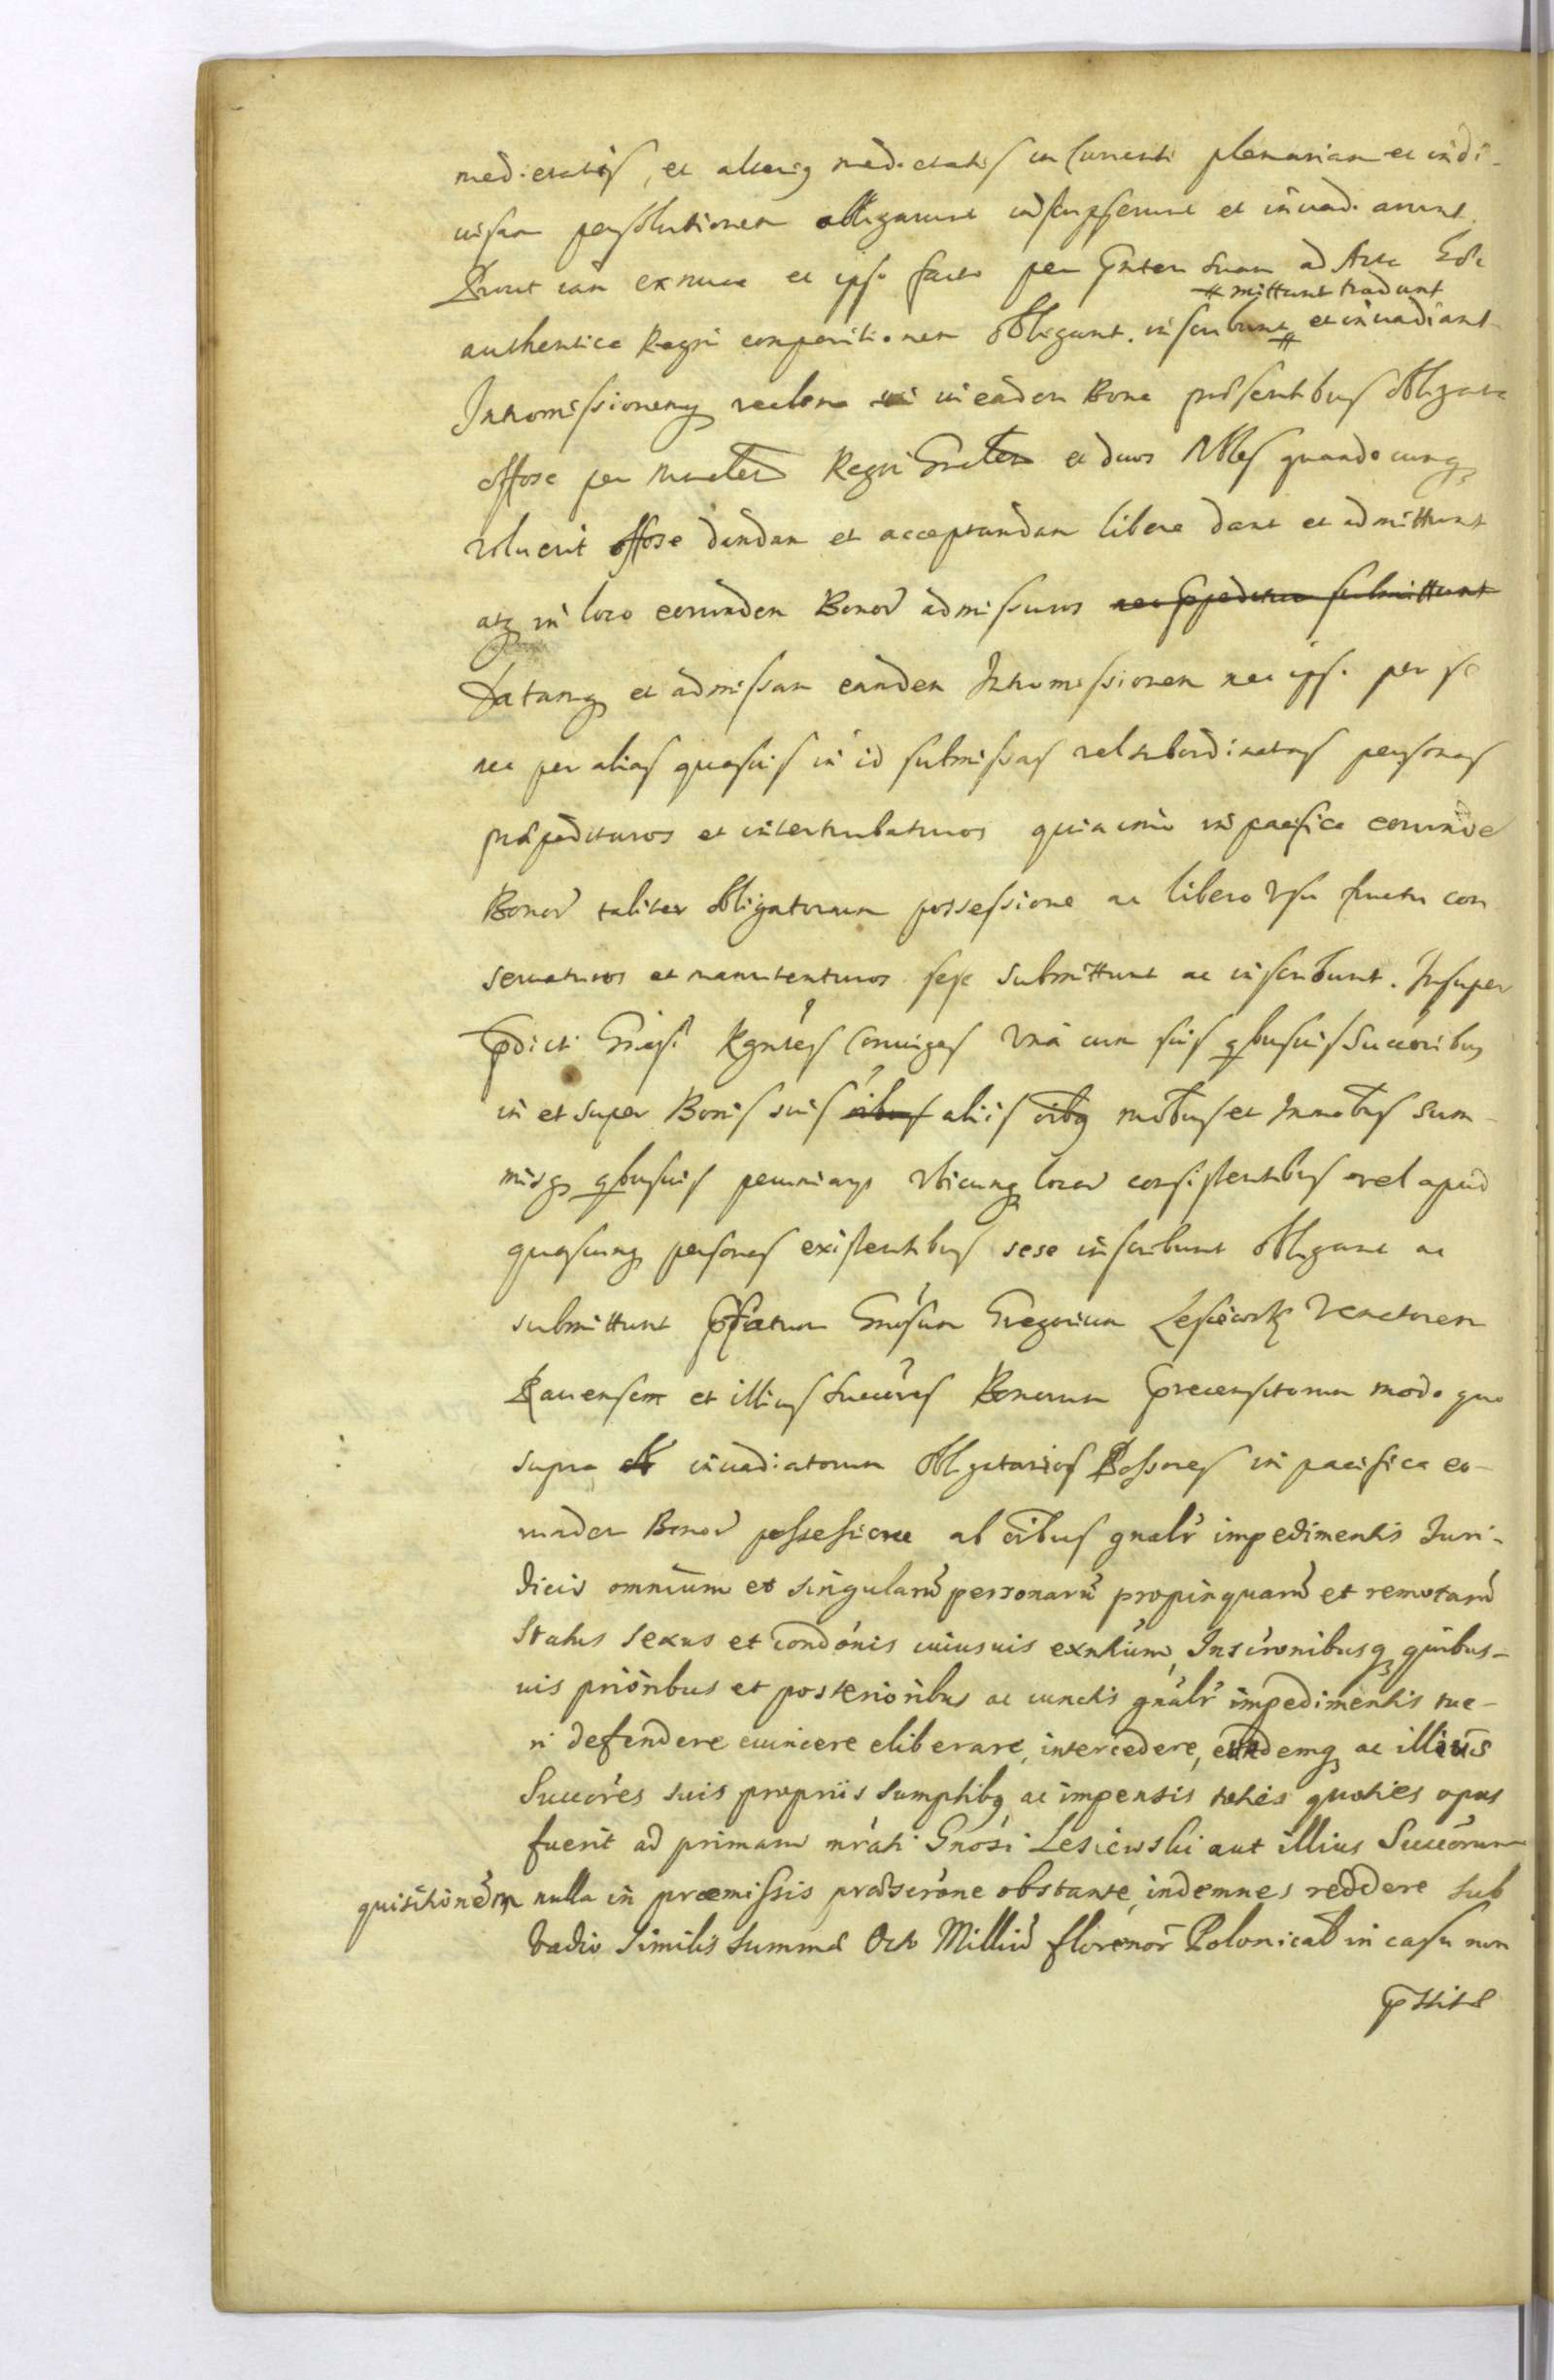 medietatis, et alterius medietatis in Currenti plenariam et indi-
uisam persolutionem obligarunt inscripserunt et inuadiarunt.
Prout iam exnunc et ipso facto per Gnten suam ad Acta
# mittunt tradunt
authentica Regni comparitionem obligant. inscribunt # et inuadiant
Intromissionemq realem in eadem Bona pntibus obligata
offose per Mnrlem Regni Gnrlem et duos Nbles quandocunq
voluerit offose dandam et acceptandam libere dant et admittunt
atq in loco eorundem Bonor admissuros nec ppedituros submittunt
Datamq et admissam eandem Intromissionem nec ipsi per se
nec per alias quasuis in id submissas vel subordinatas personas
præpedituros et interturbaturos quin imo in pacifica eorunde
Bonor taliter obligatorum possessione ac libero Vsu fructu con
seruaturos et manutenturos sese submittunt ac inscribunt. Insuper
pdicti Gnosi Rgntes Coniuges Vna cum suis qbusuis Succoribus
in et super Bonis suis oibus aliis oibq mobus et Inmobus sum-
misq qbusuis pecuniarys Vbicunq locor consistentibus vel apud
quascunq personas existentibus sese inscribunt obligant ac
submittunt pfatum Gnosum Gregorium Lesiewsky Venatorem
Rauensem et illius succores Bonorum precensitorum modo quo
supra inuadiatorum obligatarios Possores in pacifica eo-
rundem Bonor possessione ab oibus gnalr impedimentis Iuri-
dicis omnium et singularu personaru propinquaru et remotaru
Status sexus et condonis cuiusuis exntium, Inscronibusq quibus-
uis prioribus et posterioribus ac cunctis gnalr impedimentis tue-
ri defendere euincere eliberare, intercedere, eundemq ac illius
Succores suis propriis sumptibq ac impensis toties quoties opus
fuerit ad primam mrati Gnosi Lesiewski aut illius Succorum
quisitionem nulla in præmissis præscrone obstante, indemnes reddere sub
Vadio Similis summæ Octo Milliu florenor Polonical in casu non
pstitæ